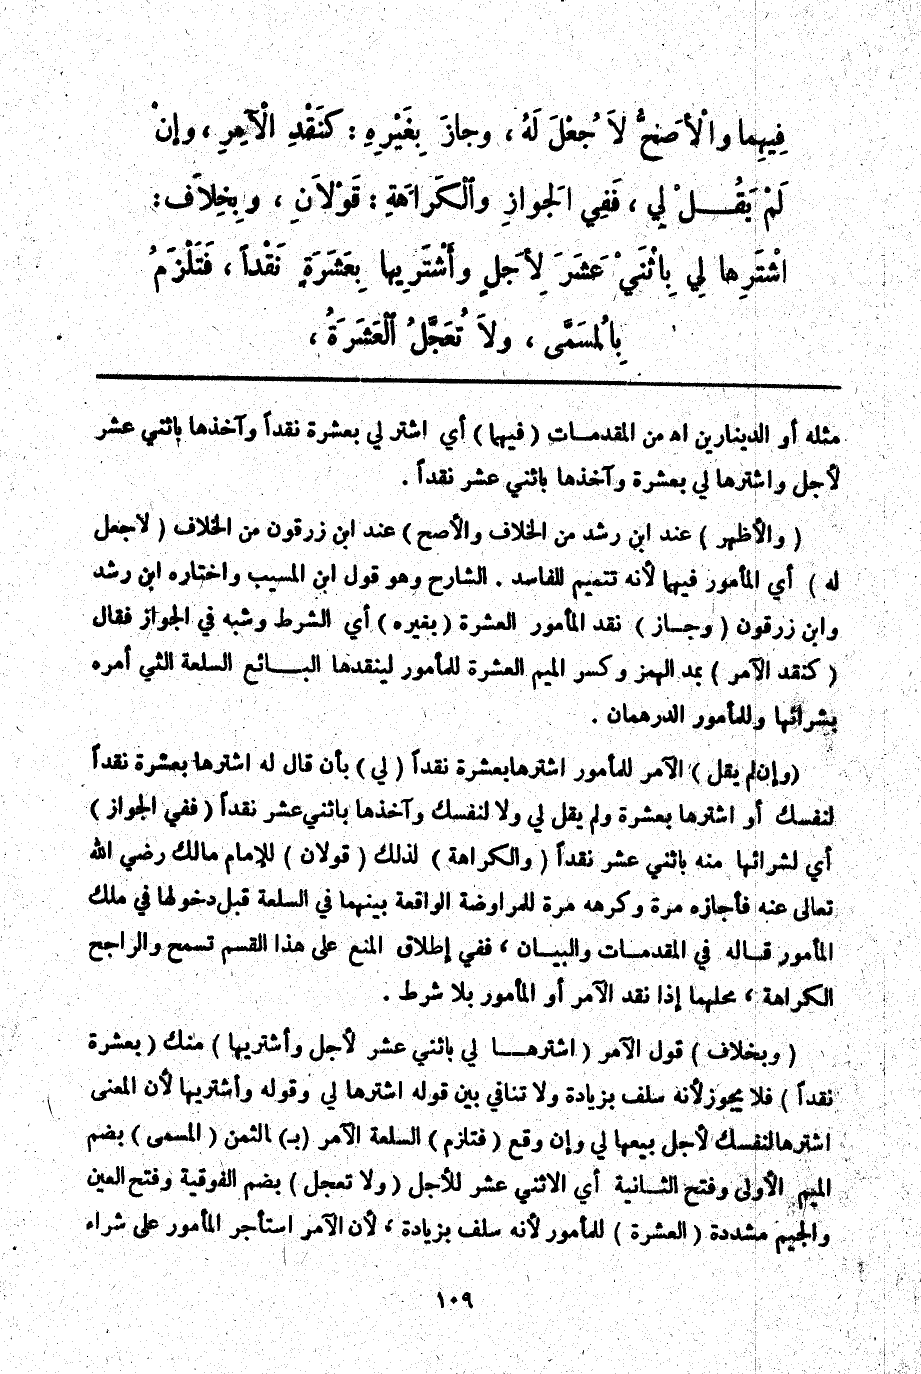 فِيهِما وَالْأَصَحُّ لاَ جُعْلَ لَهُ ، وجازَ بِغَيْرِهِ : كَنَقْدِ الْآمِرِ ، وإنْ
لَمْ يَقُـــلْ لِي ، فَفِي الجَوازِ والْكَرَاهَةِ : قَوْلاَنِ ، وبِخِلاَفِ :
اشْتَرِها لِي بِاثْنَيْ عَشَرَ لِأَجَلٍ وأَشْتَرِيها بِعَشَرَةٍ نَقْداً ، فَتَلْزَمُ
بِالمُسَمَّى ، ولاَ تُعَجَّلُ الْعَشَرَةُ ،
مثله أو الدينارين اه من المقدمـات ( فيها ) أي اشتر لي بعشرة نقداً وآخذها باثني عشر
لأجل واشترها لي بعشرة وآخذها باثني عشر نقداً .
( والأظهر ) عند ابن رشد من الخلاف والأصح ) عند ابن زرقون من الخلاف ( لا جعل
له ) أي المأمور فيها لأنه تتميم للفاسد . الشارح وهو قول ابن المسيب واختاره ابن رشد
وابن زرقون ( وجـاز ) نقد المأمور العشرة ( بغيره ) أي الشرط وشبه في الجواز فقال
( كنقد الآمر ) بمد الهمز وكسر الميم العشرة للمأمور لينقدها البـــائع السلعة التي أمره
بشرائها وللمأمور الدرهمان .
(وإن لم يقل ) الآمر للمأمور اشترهابعشرة نقداً ( لي ) بأن قال له اشترها بعشرة نقداً
لنفسك أو اشترها بعشرة ولم يقل لي ولا لنفسك وآخذها باثني عشر نقداً ( ففي الجواز )
أي لشرائها منه باثني عشر نقداً ( والكراهة ) لذلك ( قولان ) للإمام مالك رضي الله
تعالى عنه فأجازه مرة وكرهه مرة للمراوضة الواقعة بينهما في السلعة قبل دخولها في ملك
المأمور قـاله في المقدمـات والبيـان ، ففي إطلاق المنع على هذا القسم تسمح والراجح
الكراهة ، محلهما إذا نقد الآمر أو المأمور بلا شرط .
( وبخلاف ) قول الآمر ( اشترهـــا لي باثني عشر لأجل وأشتريها ) منك ( بعشرة
نقداً ) فلا يجوز لأنه سلف بزيادة ولا تنافي بين قوله اشترها لي وقوله وأشتريها لأن المعنى
اشترهالنفسك لأجل بيعها لي وإن وقع ( فتلزم ) السلعة الآمر (بـ) الثمن ( المسمى ) بضم
الميم الأولى وفتح الثـانية أي الاثني عشر للأجل ( ولا تعجل ) بضم الفوقية وفتح العين
والجيم مشددة ( العشرة ) للمأمور لأنه سلف بزيادة ، لأن الآمر استأجر المأمور على شراء
١٠٩